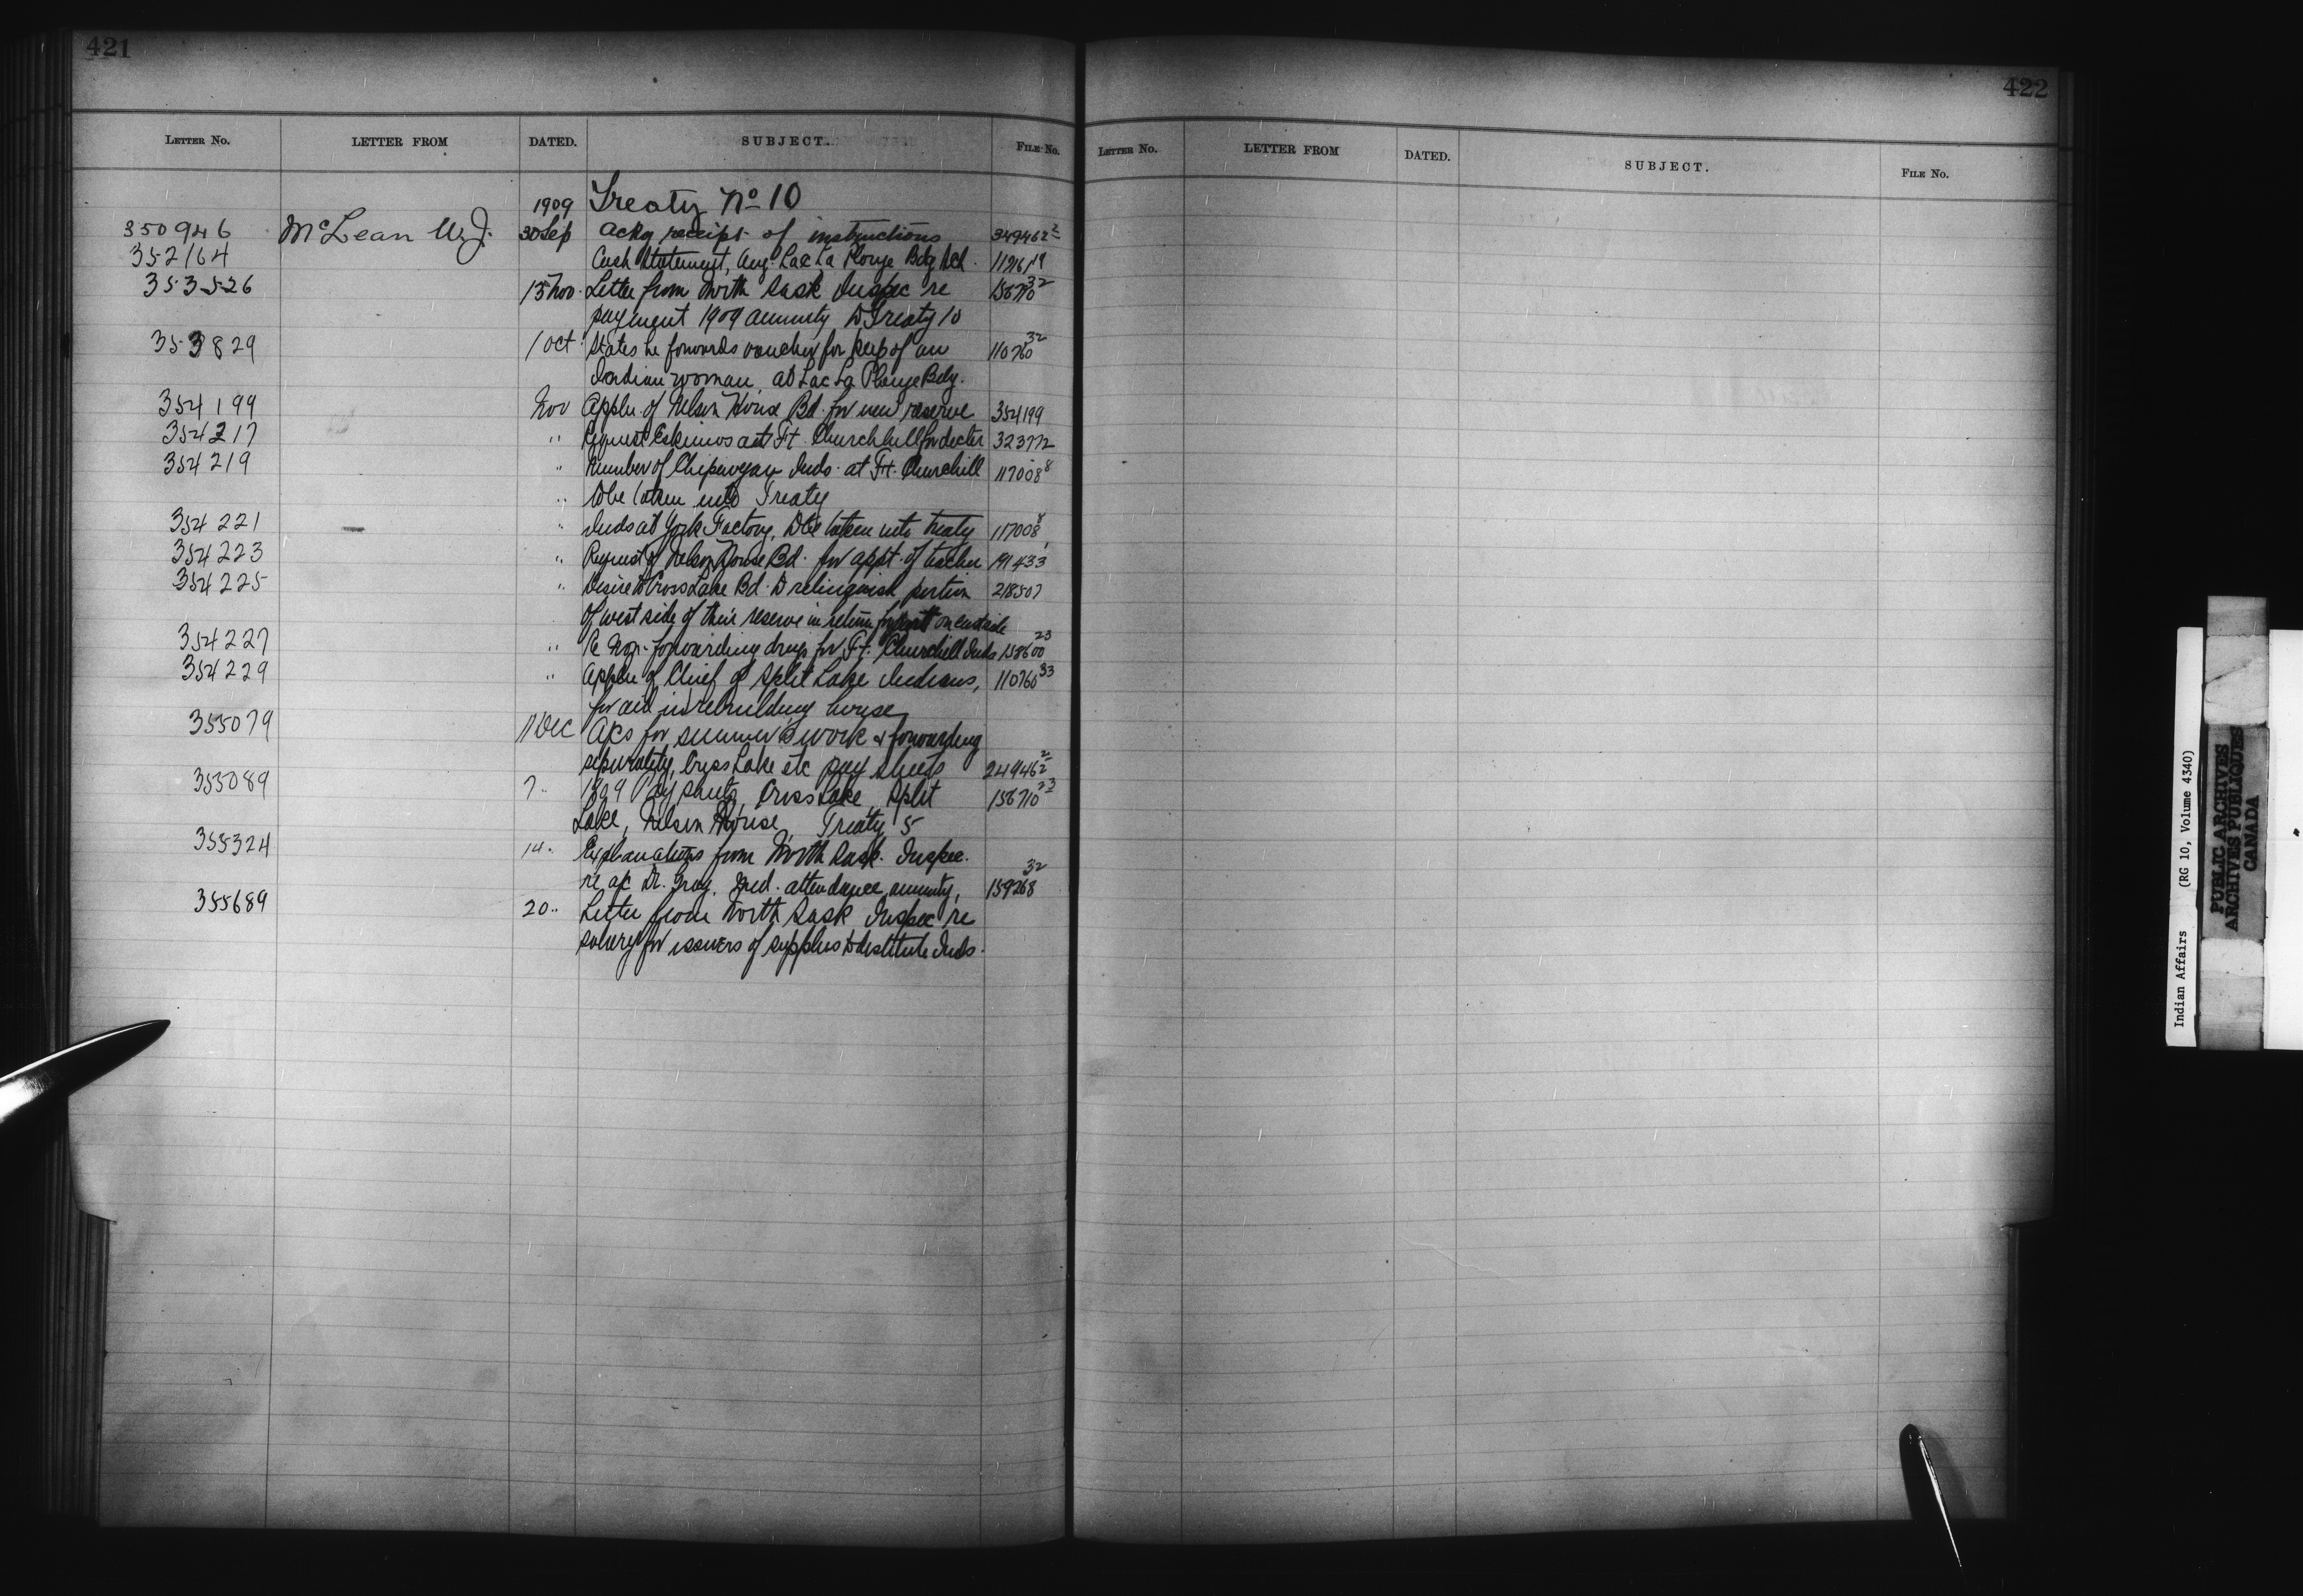 421
LETTER NO. LETTER FROM DATED. SUBJECT. FILE No.
1909 Treaty No 10
350946 McLean W.J. 30 Sep Ackg receipt of instructions 349462 2
352164 Cash Statement, Aug. Lac La Ronge Bdg Sch. 112161 19
353526 15 Nov. Letter from North Sask Inspec re 158710 32
payment 1909 annuity to Treaty 10
353829 1 Oct. States he forwards voucher for keep of an 110760 32
Indian woman, at Lac La Ronge Bdg.
354199 Nov Appln. of Nelson House Bd. for new reserve 354199
354217 " Request Eskimos at Ft. Churchill for doctor 323772
354219 " Number of Chipewyan Inds. at Ft. Churchill 117008 8
" to be taken into Treaty
354221 " Inds at York Factory, to be taken into treaty 117008 8
354223 " Request of Nelson House Bd. for appt. of teacher 191433
354225 " Desire to Cross Lake Bd. to relinquish portion 218507
of west side of their reserve in return for part on eastside
354227 " Re forwarding drugs for Ft. Churchill Inds 158600 23
354229 " Appln of Chief of Split Lake Indians, 110760 33
for aid in rebuilding house
355079 11 Dec A/cs for summer's work & forwarding
separately, Cross Lake etc pay sheets 249462 2
355089 7 " 1909 Pay sheets, Cross Lake, Split 158710
Lake, Nelson House, Treaty 5
355324 14 " Explanations from North Sask. Inspec.
re a/c Dr. Gray. Med. attendance, annuity, 159268 32
355689 20 " Letter from North Sask Inspec re
salary for issuers of supplies to destitute Inds.
422
LETTER NO. LETTER FROM DATED. SUBJECT. FILE No.
Indian Affairs (RG 10, Volume 4340)
PUBLIC ARCHIVES
ARCHIVES PUBLIQUES
CANADA